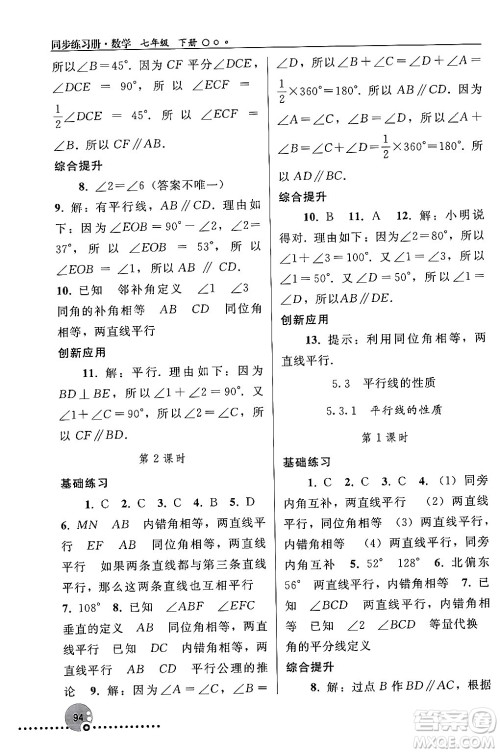 同步练习册·数学 七年级 下册
所以∠B=45°. 因为 CF 平分
∠DCE=90°，所以∠ECF=
1/2∠DCE=45°. 所以∠B=
∠ECF. 所以 CF∥AB.
综合提升
8. ∠2=∠6（答案不唯一）
9. 解：有平行线，AB∥CD. 理由如
下：因为∠EOB=90°-∠2，∠2=
37°，所以∠EOB=53°. 所以
∠EOB=∠1. 所以AB∥CD.
10. 已知 邻补角定义 ∠CDA
同角的补角相等 AB CD 同位角
相等，两直线平行
创新应用
11. 解：平行. 理由如下：因为
BD⊥BE，所以∠DBE=90°. 所以
∠1+∠2=90°. 因为∠1+∠C=
90°，所以∠2=∠C. 所以CF∥BD.
第 2 课时
基础练习
1. C 2. C 3. B 4. C 5. D
6. MN AB 内错角相等，两直线平
行 EF AB 同位角相等，两直线
平行 如果两条直线都与第三条直线
平行，那么这两条直线也互相平行
7. 108° 8. 已知 ∠ABF ∠EFC
垂直的定义 同位角相等，两直线平
行 已知 CD 内错角相等，两直
线平行 AB CD 平行公理的推
论 9. 解：因为∠A=∠C，∠B=
94
∠D，∠A+∠B+∠C+∠D=
1/2×360°=180°. 因为∠A=∠C，
所以∠A+∠D=1/2×360°=180°.
所以AB∥CD.
综合提升
10. B 11. A 12. 解：小明说
得对. 理由如下：因为∠2=80°，所以
∠1+∠2=180°. 因为∠1=∠3，所
以∠2+∠3=180°. 所以AB∥CD.
创新应用
13. 提示：利用同位角相等，两
直线平行.
5.3 平行线的性质
5.3.1 平行线的性质
第 1 课时
基础练习
1. C 2. C 3. A 4. （1）同旁
内角互补，两直线平行 （2）同位角
相等，两直线平行 （3）两直线平行，
内错角相等 （4）两直线平行，同旁
内角互补 5. 32° 6. 北偏东
57° 7. 已知 ∠ABC 两直线平
行，内错角相等 已知 等量代换
角的平分线定义
综合提升
8. 解：过点 B 作 BD∥AG. 根据